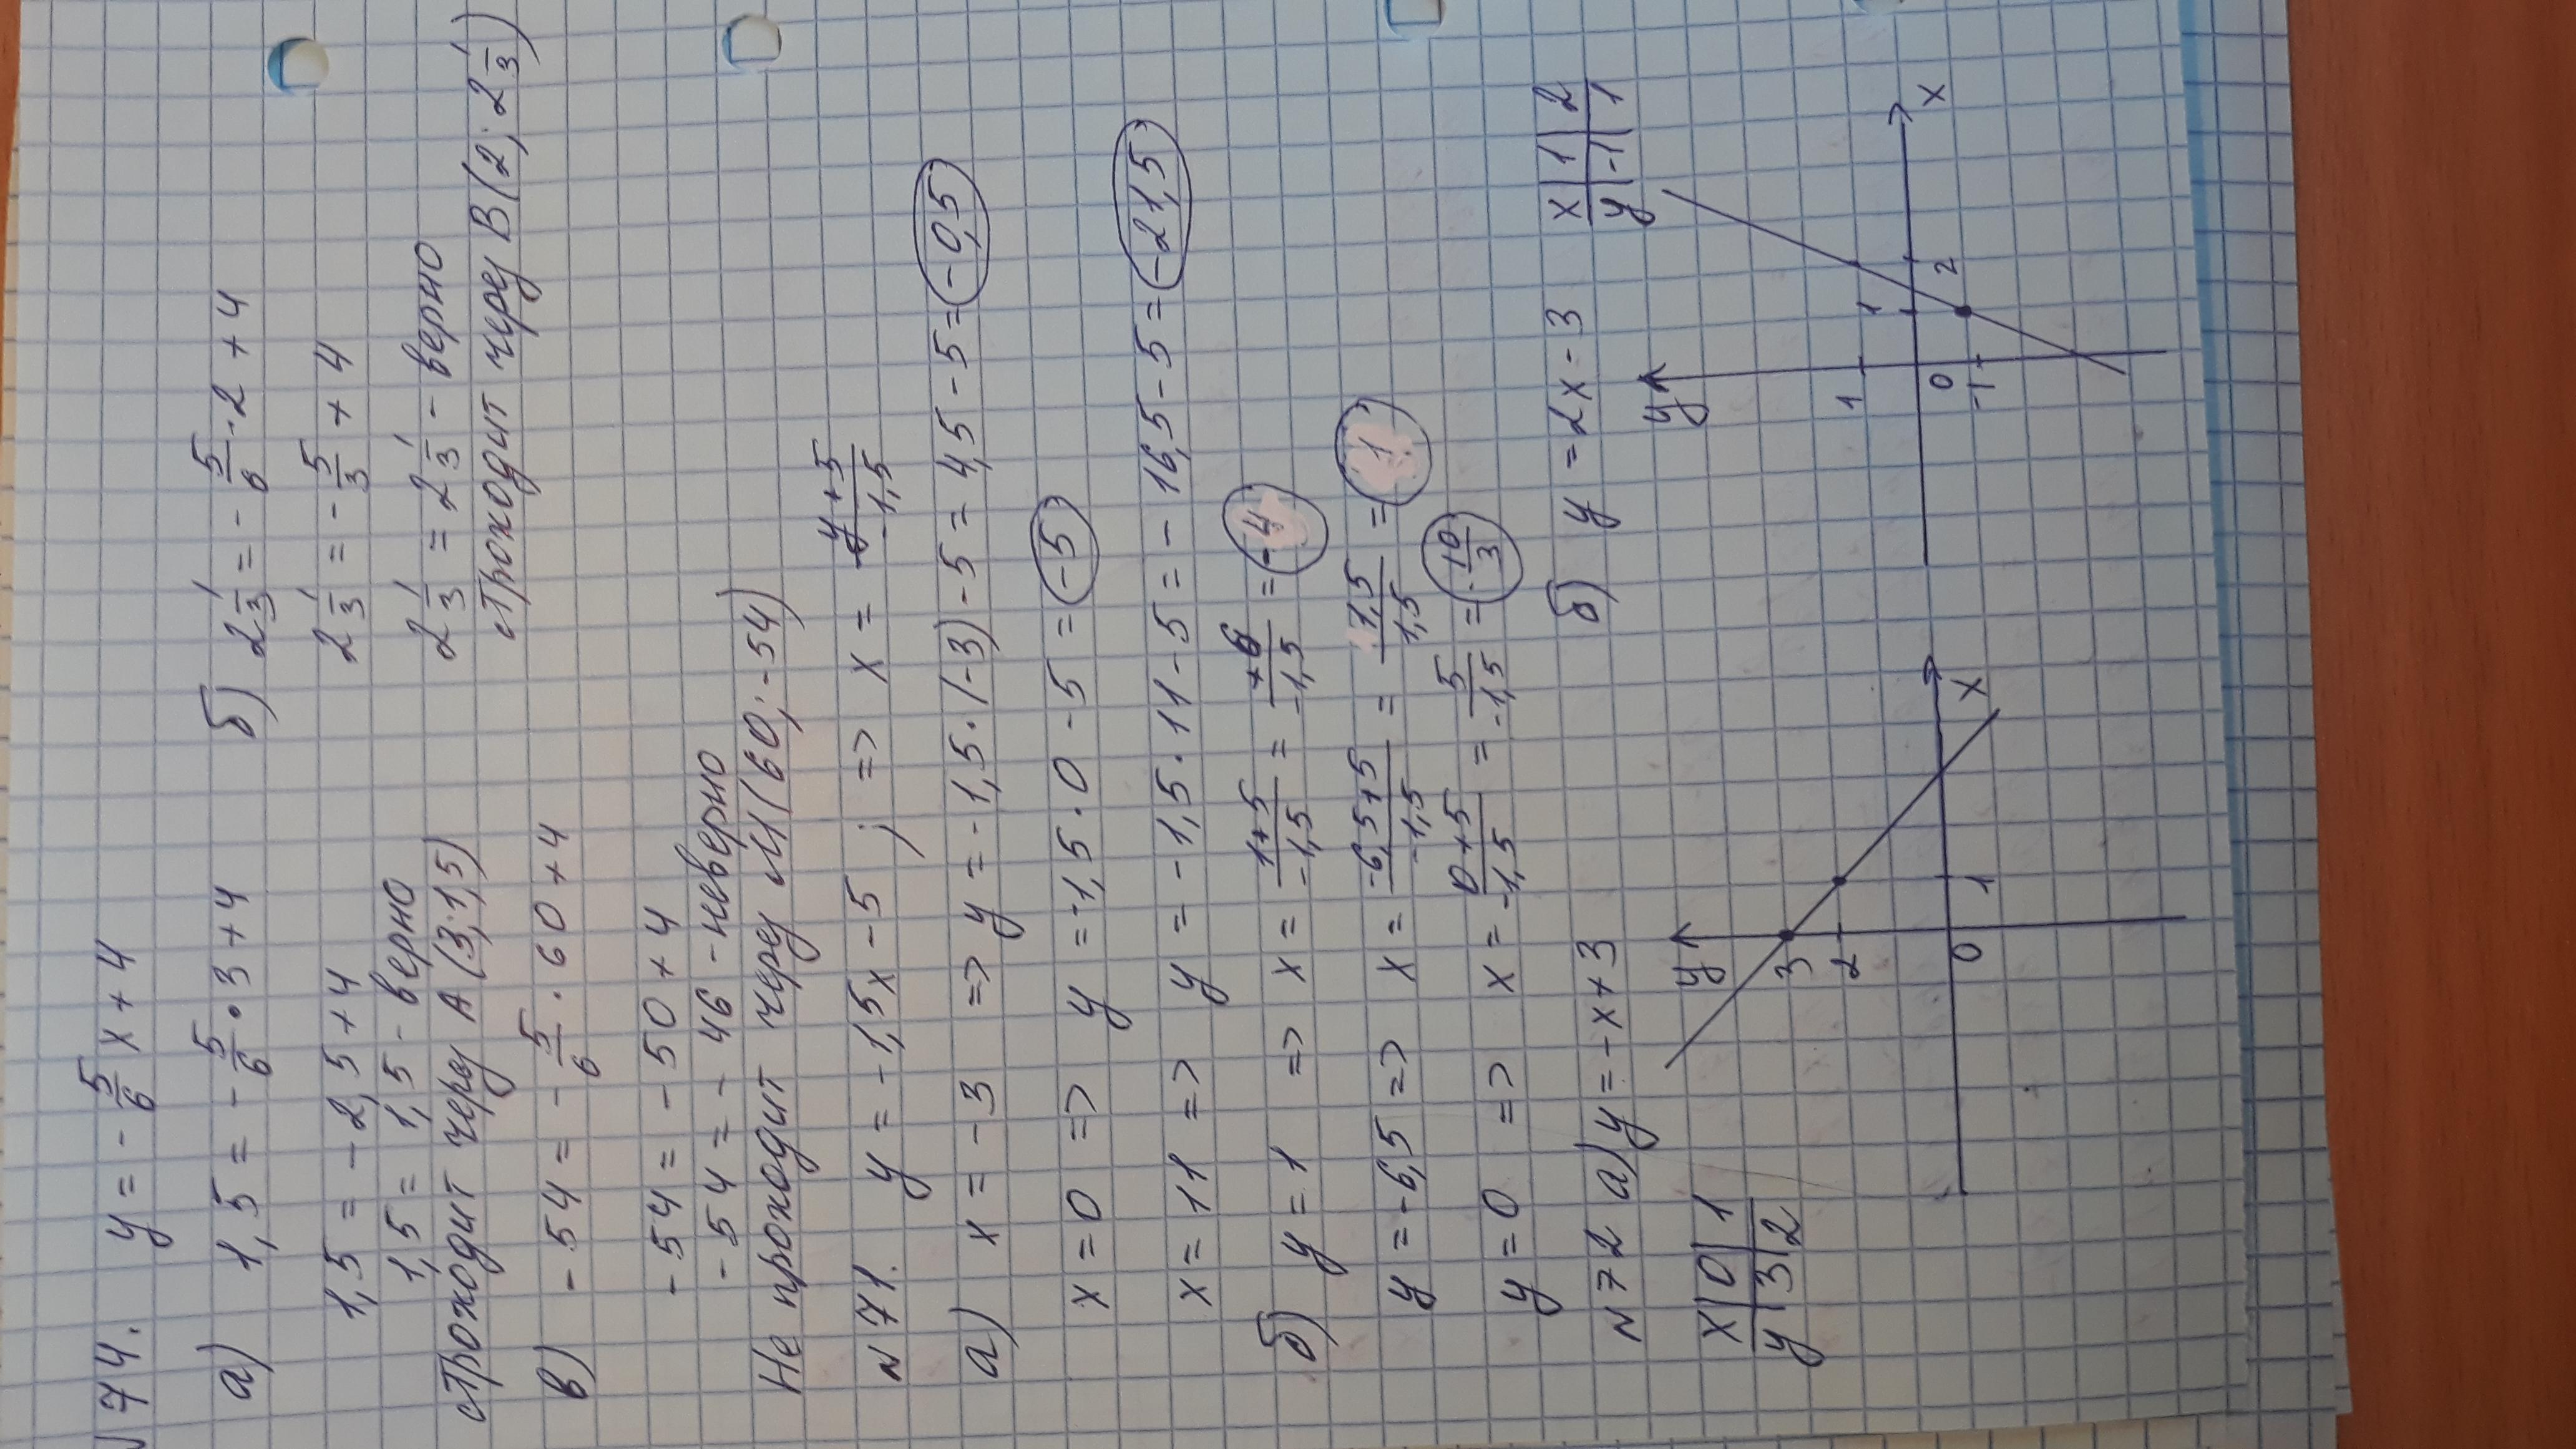 № 74. y = - 5/6 x + 4
а) 1,5 = - 5/6 · 3 + 4
1,5 = - 2,5 + 4
1,5 = 1,5 - верно
Проходит через А (3; 1,5)
б) 2 1/3 = - 5/6 · 2 + 4
2 1/3 = - 5/3 + 4
2 1/3 = 2 1/3 - верно
Проходит через В (2; 2 1/3)
в) - 54 = - 5/6 · 60 + 4
- 54 = - 50 + 4
- 54 = - 46 - неверно
Не проходит через М (60; -54)
№ 71. y = - 1,5x - 5 ; => x = (y + 5)/(-1,5)
а) x = - 3 => y = - 1,5 · (-3) - 5 = 4,5 - 5 = - 0,5
x = 0 => y = -1,5 · 0 - 5 = - 5
x = 11 => y = - 1,5 · 11 - 5 = - 16,5 - 5 = - 21,5
б) y = 1 => x = (1 + 5)/(-1,5) = +6/(-1,5) = - 4
y = - 6,5 => x = (-6,5 + 5)/(-1,5) = - 1,5/1,5 = 1
y = 0 => x = (0 + 5)/(-1,5) = 5/(-1,5) = - 10/3
№ 72 а) y = - x + 3
x | 0 | 1
y | 3 | 2
y
3
2
0
1
x
б) y = 2x - 3
x | 1 | 2
y | -1 | 1
y
1
0
-1
1
2
x